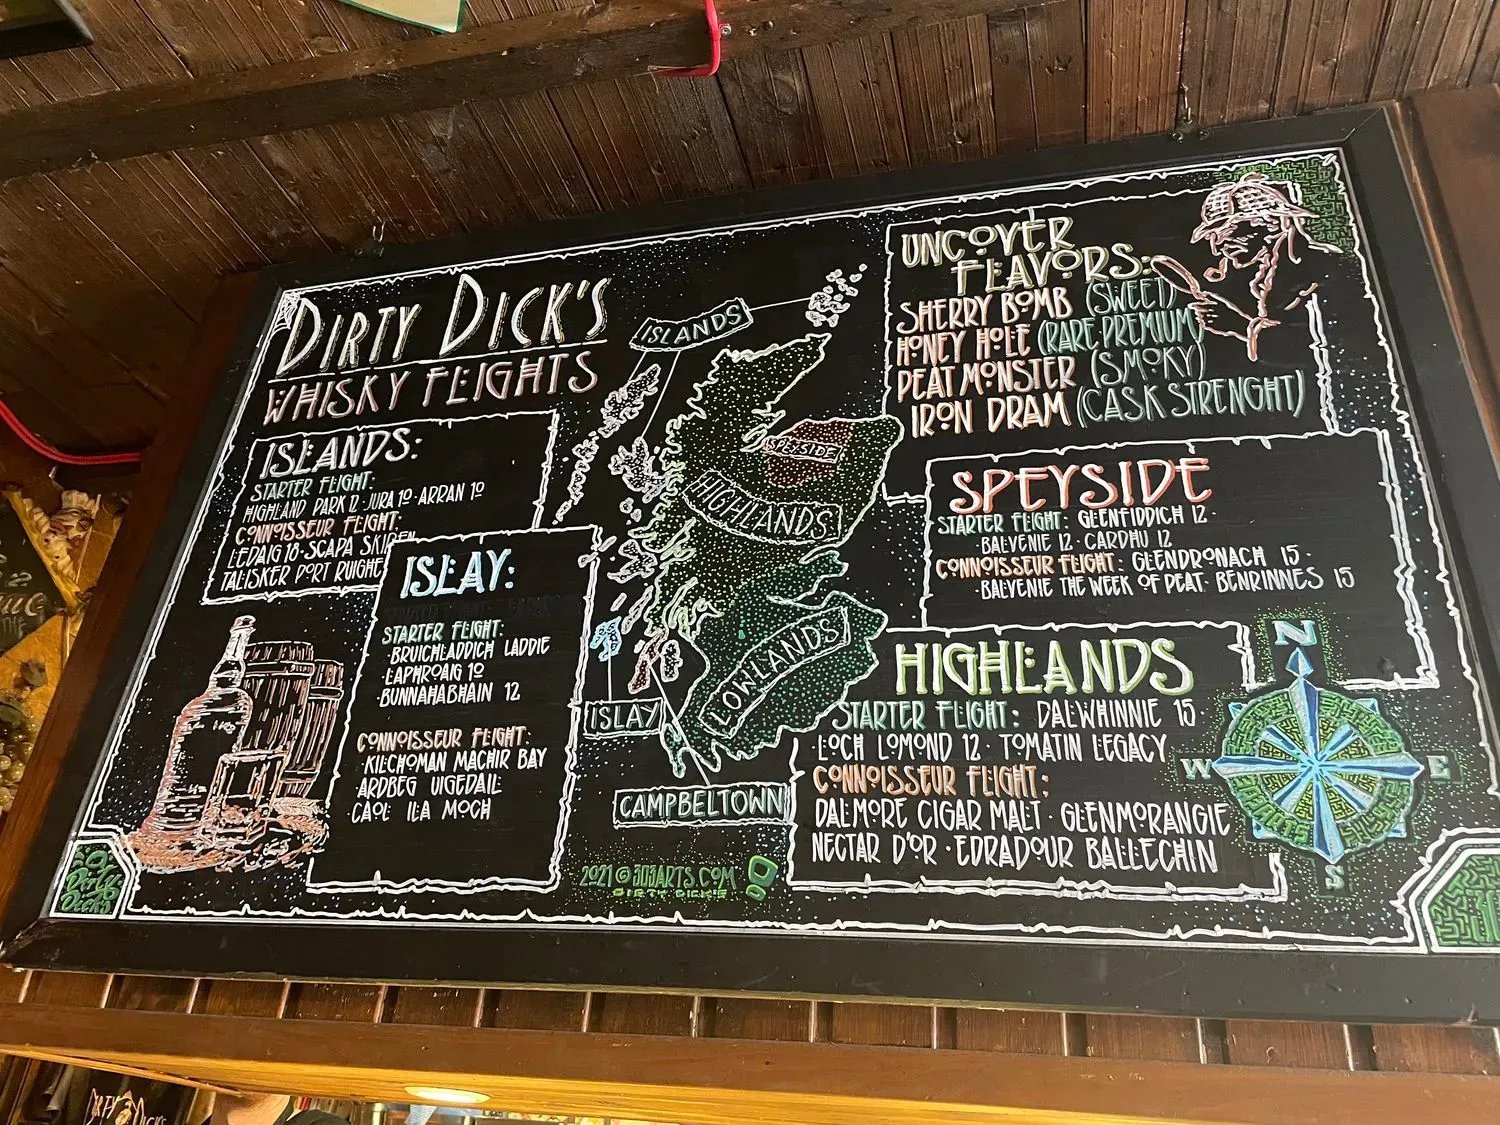 DIRTY DICK'S
WHISKY FLIGHTS
ISLANDS:
STARTER FLIGHT:
HIGHLAND PARK 12 · JURA 10 · ARRAN 10
CONNOISSEUR FLIGHT:
LEDAIG 18 · SCAPA SKIREN
TALISKER PORT RUIGHE
ISLAY:
STARTER FLIGHT:
· BRUICHLADDICH LADDIE
· LAPHROAIG 10
· BUNNAHABHAIN 12
CONNOISSEUR FLIGHT:
· KILCHOMAN MACHIR BAY
· ARDBEG UIGEDAIL
· CAOL ILA MOCH
ISLANDS
SPEYSIDE
HIGHLANDS
LOWLANDS
ISLAY
CAMPBELTOWN
2021 © 3103ARTS.COM
DIRTY DICK'S
UNCOVER
FLAVORS:
SHERRY BOMB (SWEET)
HONEY HOLE (RARE PREMIUM)
PEAT MONSTER (SMOKY)
IRON DRAM (CASK STRENGHT)
SPEYSIDE
STARTER FLIGHT: GLENFIDDICH 12 ·
· BALVENIE 12 · CARDHU 12
CONNOISSEUR FLIGHT: GLENDRONACH 15 ·
· BALVENIE THE WEEK OF PEAT · BENRINNES 15
HIGHLANDS
STARTER FLIGHT: DALWHINNIE 15
· LOCH LOMOND 12 · TOMATIN LEGACY
CONNOISSEUR FLIGHT:
DALMORE CIGAR MALT · GLENMORANGIE
NECTAR D'OR · EDRADOUR BALLECHIN
N
W
E
S
Dirty
Dicks